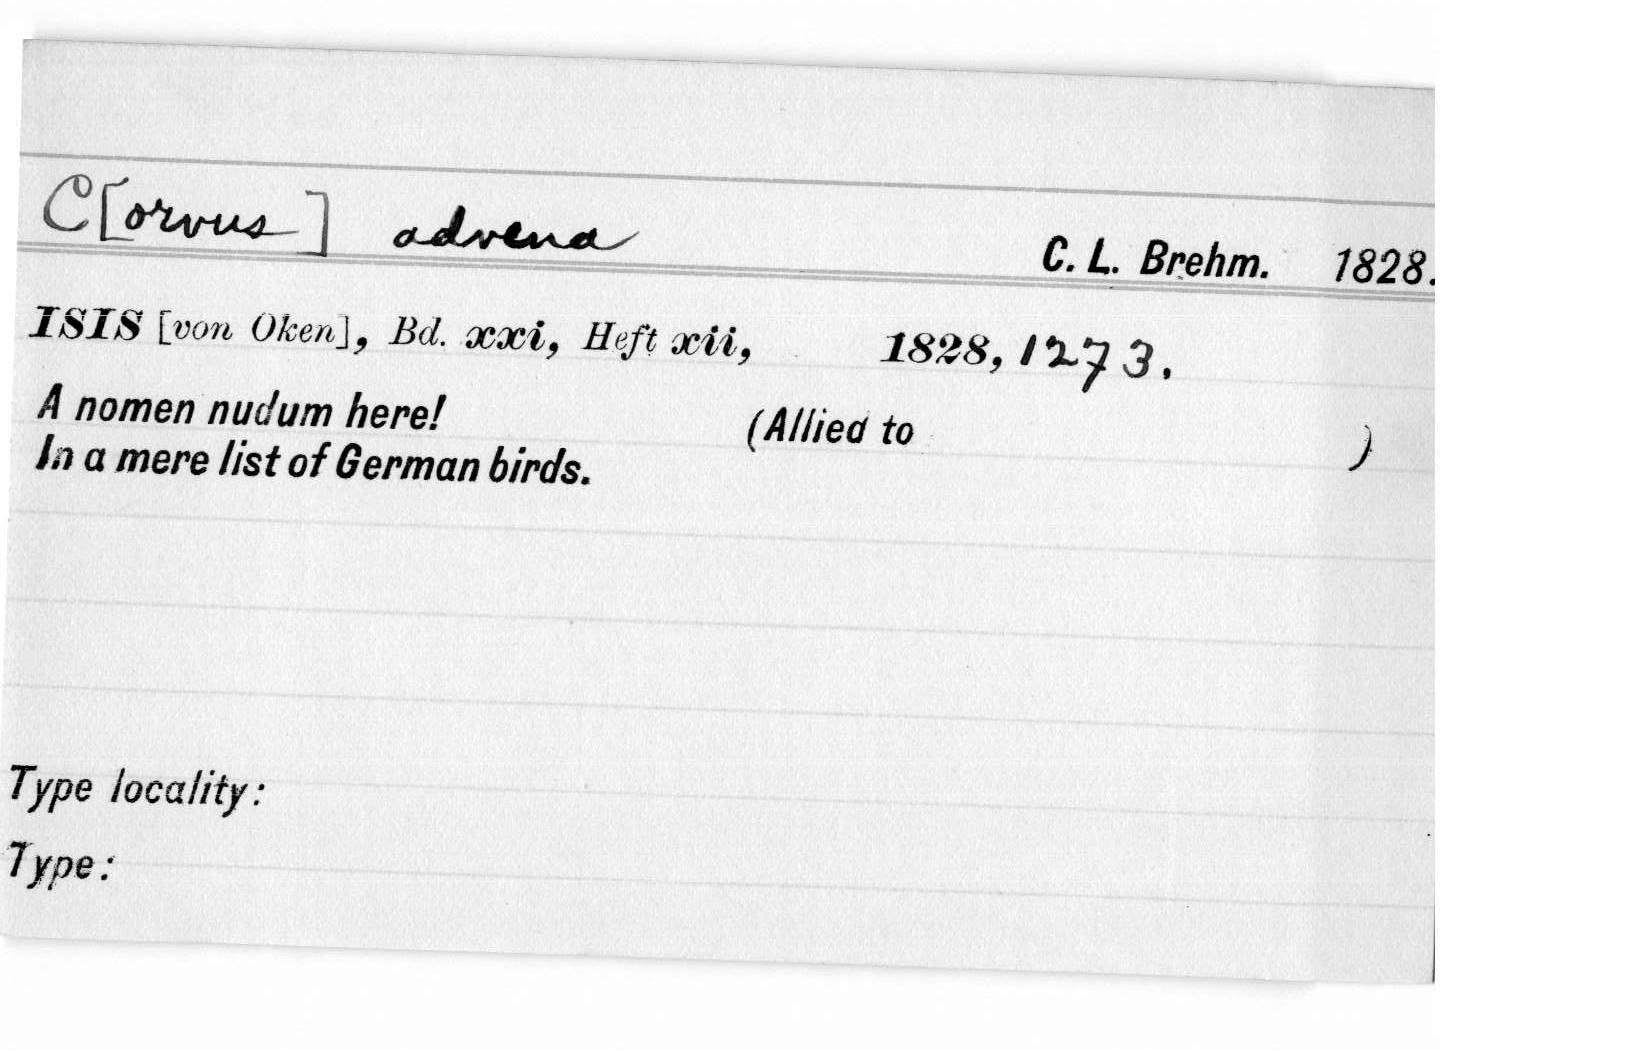 C[orvus] advena C. L. Brehm. 1828.
ISIS [von Oken], Bd. xxi, Heft xii, 1828, 1273.
A nomen nudum here! (Allied to )
In a mere list of German birds.
Type locality:
Type: